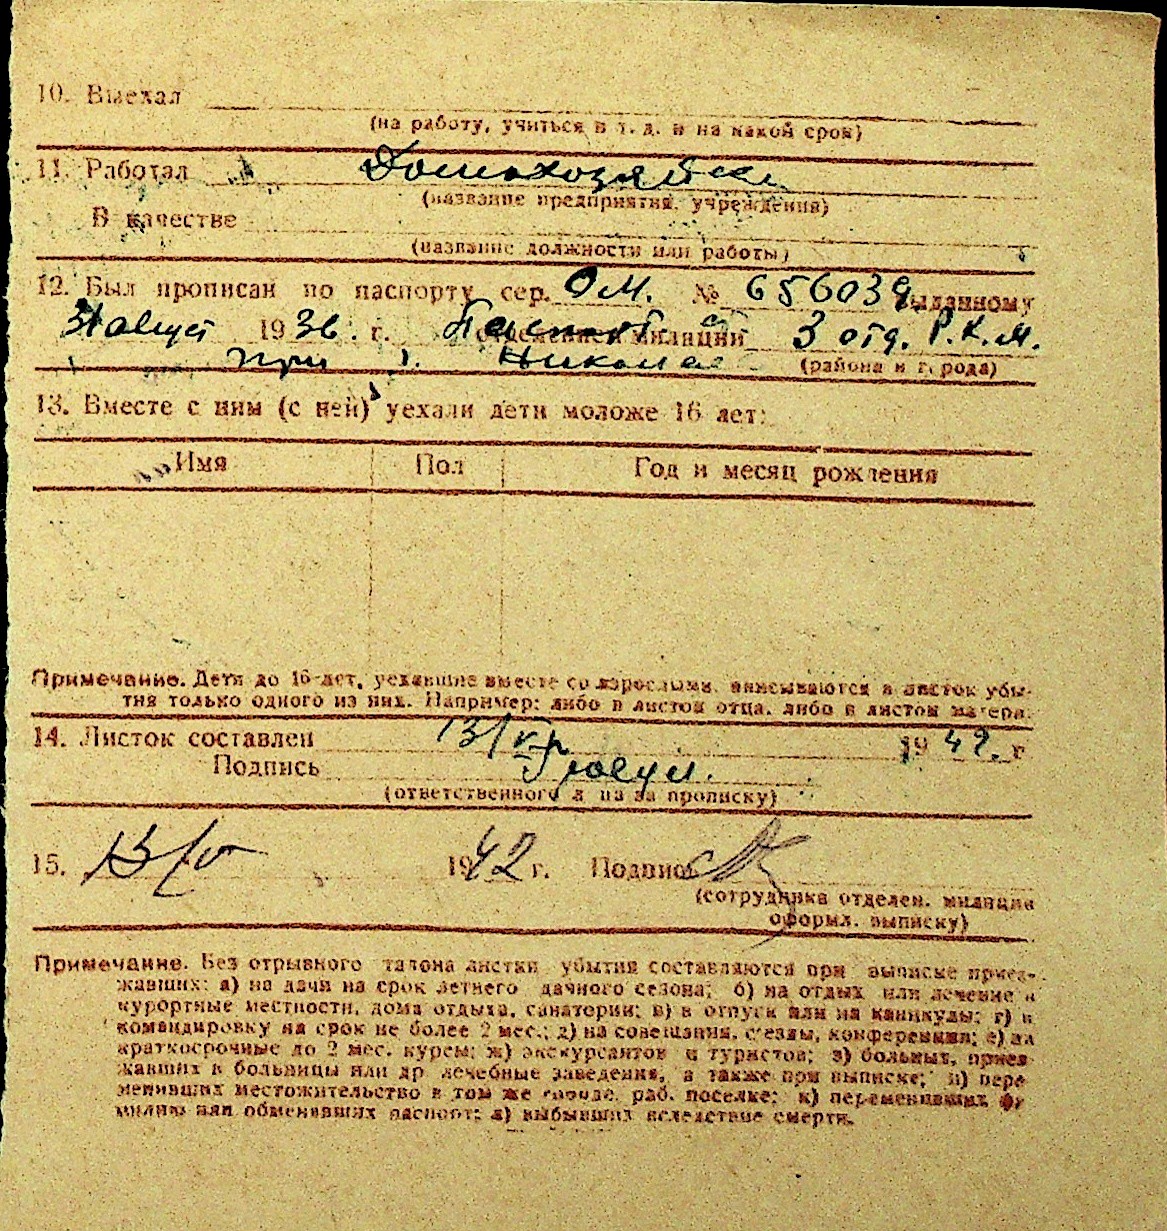 10. Выехал
(на работу, учиться и т. д. и на какой срок)
11. Работал Домохозяйка
(название предприятия, учреждения)
В качестве
(название должности или работы)
12. Был прописан по паспорту сер. ОМ. № 656039 выданному
31 август 1936. г. отделением милиции 3 отд. Р.К.М.
при (района и города)
13. Вместе с ним (с ней) уехали дети моложе 16 лет:
Имя Пол Год и месяц рождения
Примечание. Дети до 16 лет, уехавшие вместе со взрослыми, вписываются в листок убы-
тия только одного из них. Например: либо в листок отца, либо в листок матери.
14. Листок составлен 13/ 1942. г
Подпись
(ответственного л ца за прописку)
15. 13/V 1942 г. Подпись
(сотрудника отделен. милиции
оформл. выписку)
Примечание. Без отрывного талона листки убытия составляются при выписке приез-
жавших: а) на дачи на срок летнего дачного сезона; б) на отдых или лечение в
курортные местности, дома отдыха, санатории; в) в отпуск или на каникулы; г) в
командировку на срок не более 2 мес.; д) на совещания, съезды, конференции; е) на
краткосрочные до 2 мес. курсы; ж) экскурсантов и туристов; з) больных, приез-
жавших в больницы или др лечебные заведения, а также при выписке; и) пере
менивших местожительство в том же городе, раб. поселке; к) переменивших фа
милию или обменявших паспорт; л) выбывших вследствие смерти.